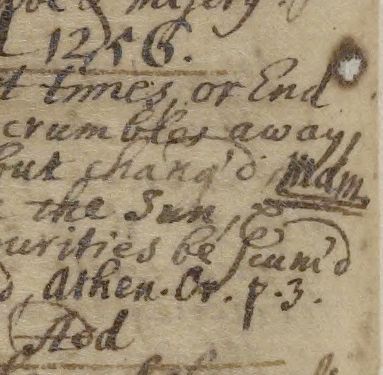 & misery
1256.
t times, or End
crumbles away,
but chang'd, Mam
the Sun, &
urities be Scum'd
Athen. Or. p. 3.
Add